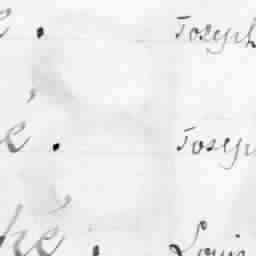 e. Joseph
é. Joseph
hé. Louis